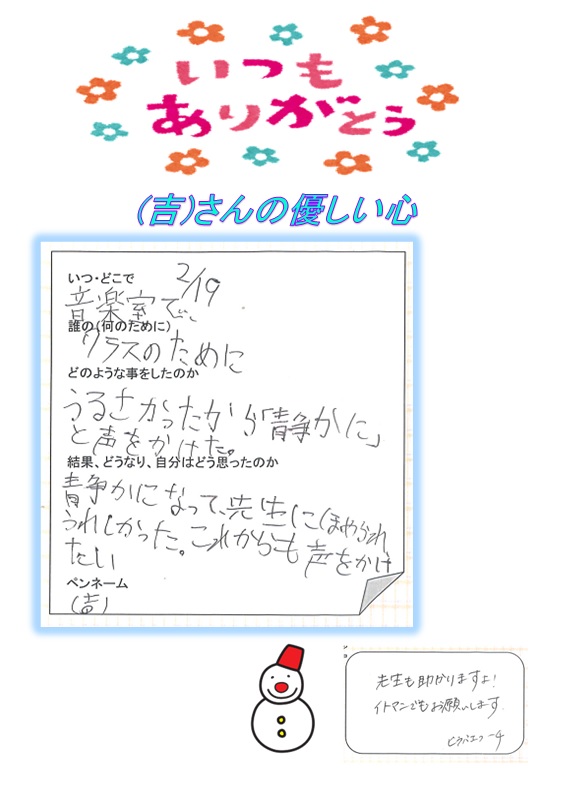 いつも
ありがとう
(吉)さんの優しい心
いつ・どこで 2/19
音楽室で、
誰の(何のために)
クラスのために
どのような事をしたのか
うるさかったから「静かに」
と声をかけた。
結果、どうなり、自分はどう思ったのか
静かになって、先生にほめられ
うれしかった。これからも声をかけ
たい
ペンネーム
(吉)
先生も助かりますよ!
イトマンでもお願いします。